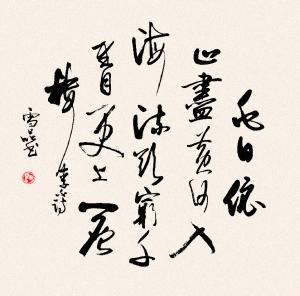 白日依
山盡黃河入
海流欲窮千
里目更上一層
樓 季凌詩
雪